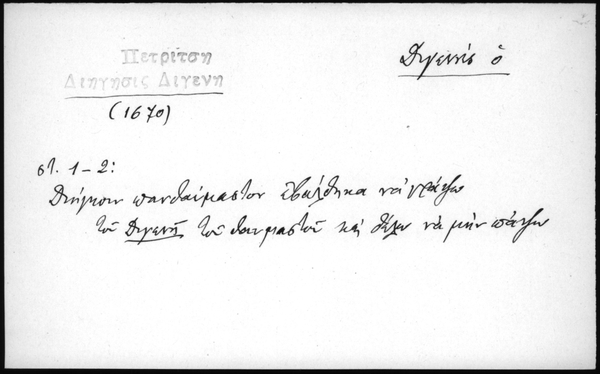 Πετρίτση
Διήγησις Διγενῆ
Διγενής ὁ
(1670)
στ. 1-2:
Διήγησιν πανθαύμαστον ἐβάλθηκα νὰ γράψω
τοῦ Διγενῆ τοῦ θαυμαστοῦ καὶ θέλω νὰ μὴν πάψω